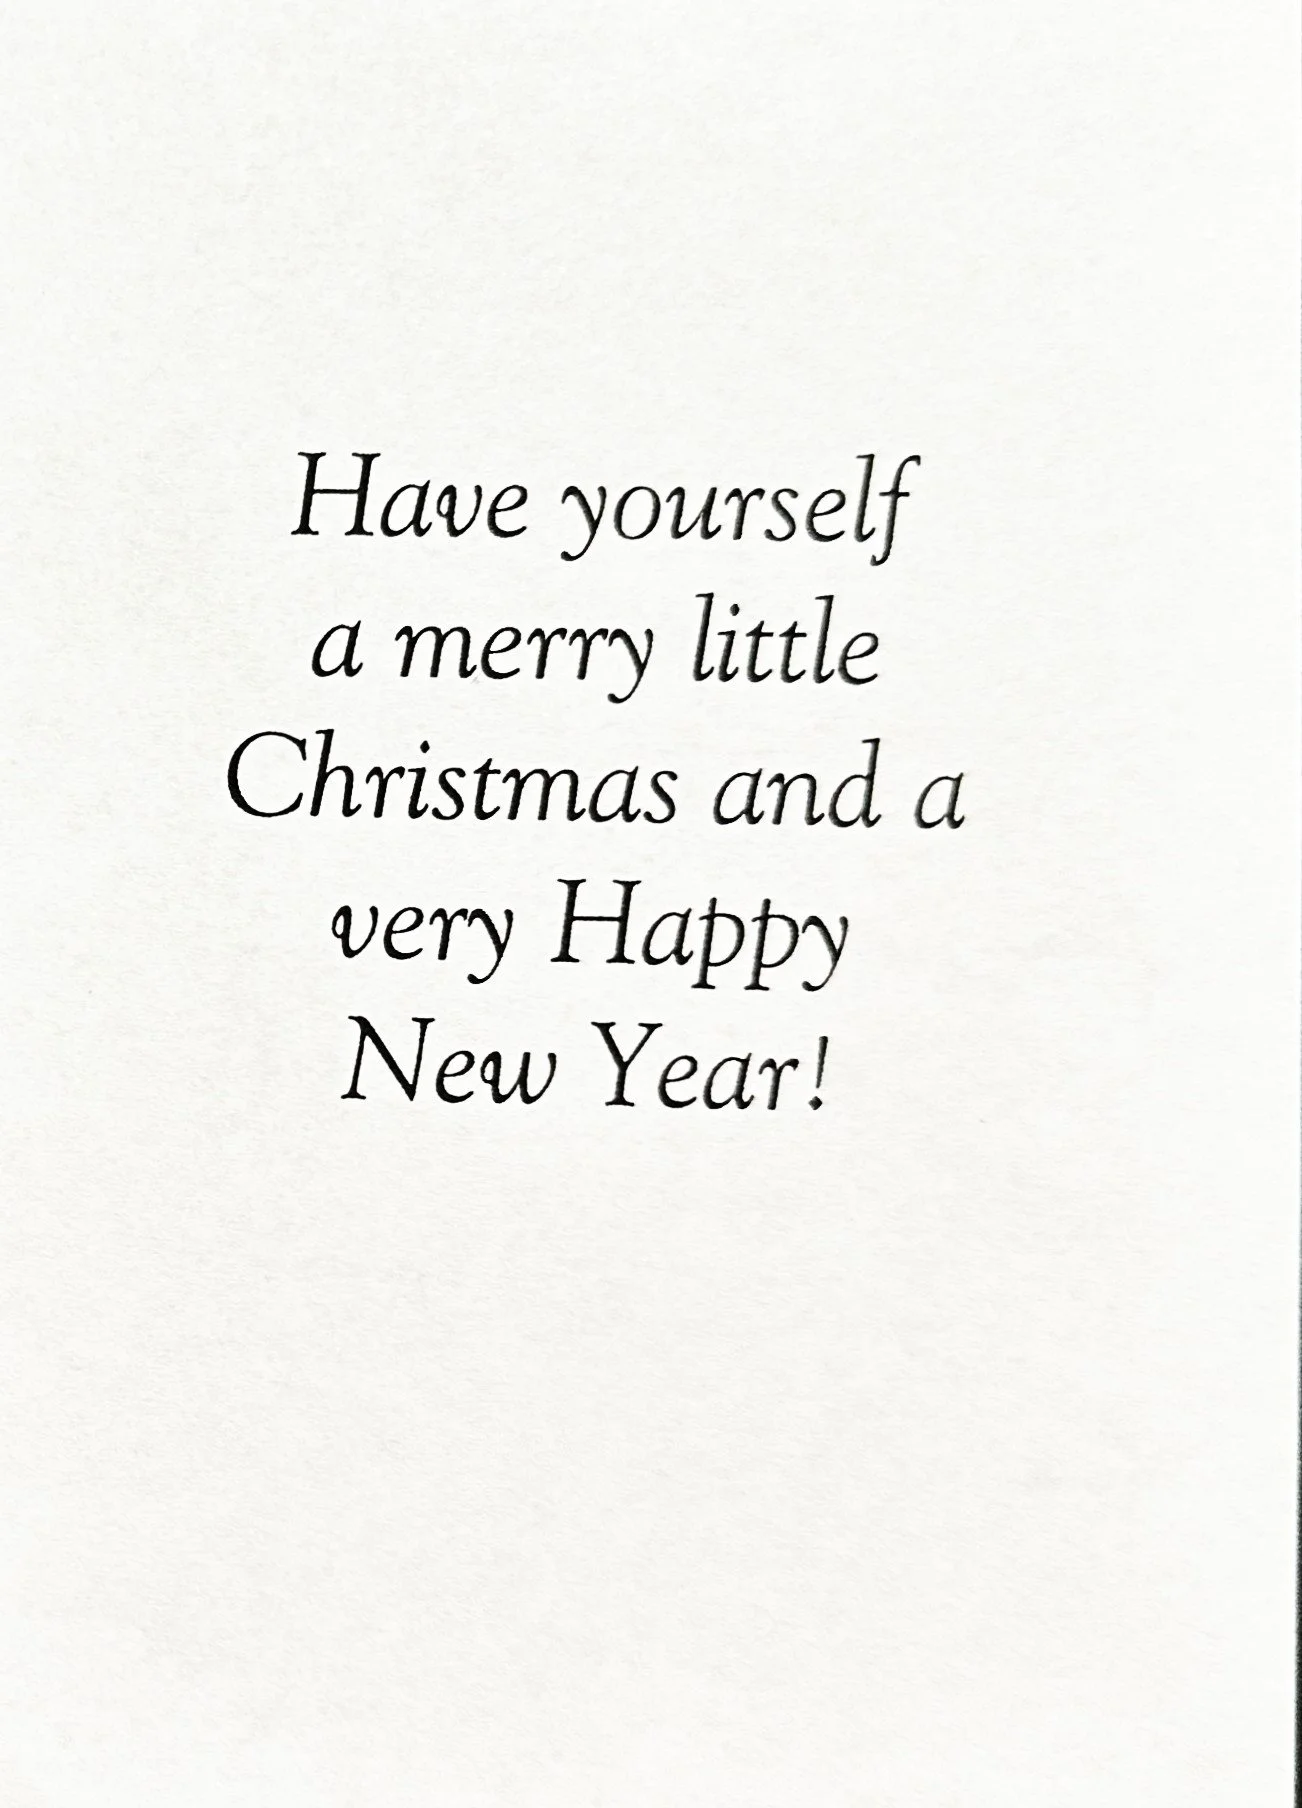 Have yourself
a merry little
Christmas and a
very Happy
New Year!